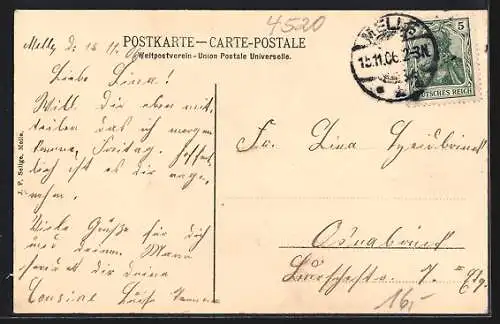 4520
Melle, d. 15.11.06
POSTKARTE — CARTE-POSTALE
Weltpostverein - Union Postale Universelle.
MELLE
15.11.06. 2-3N.
5
DEUTSCHES REICH
Liebe Lina!
Will dir eben mit-
teilen das ich morgen
komme, Freitag. hoffent-
lich ist es dir ange-
nehm.
Viele Grüße für dich
und deinen Mann
sendet dir deine
Cousine
J. P. Selige, Melle.
Fr. Lina
Osnabrück
7. II Etg.
16,-